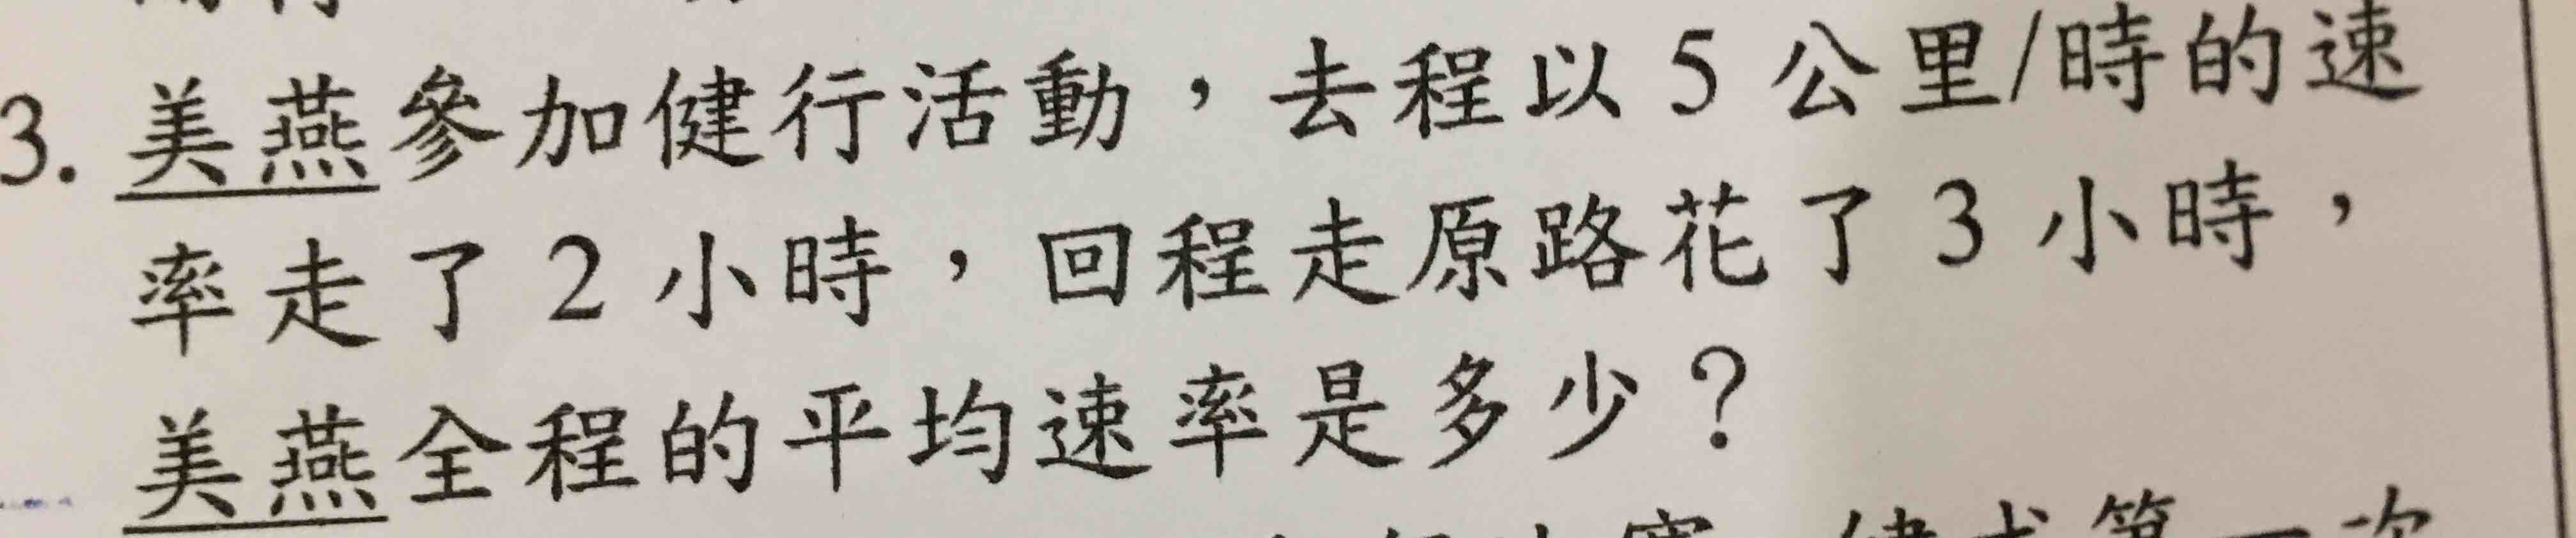 3. 美燕參加健行活動，去程以 5 公里/時的速
率走了 2 小時，回程走原路花了 3 小時，
美燕全程的平均速率是多少？